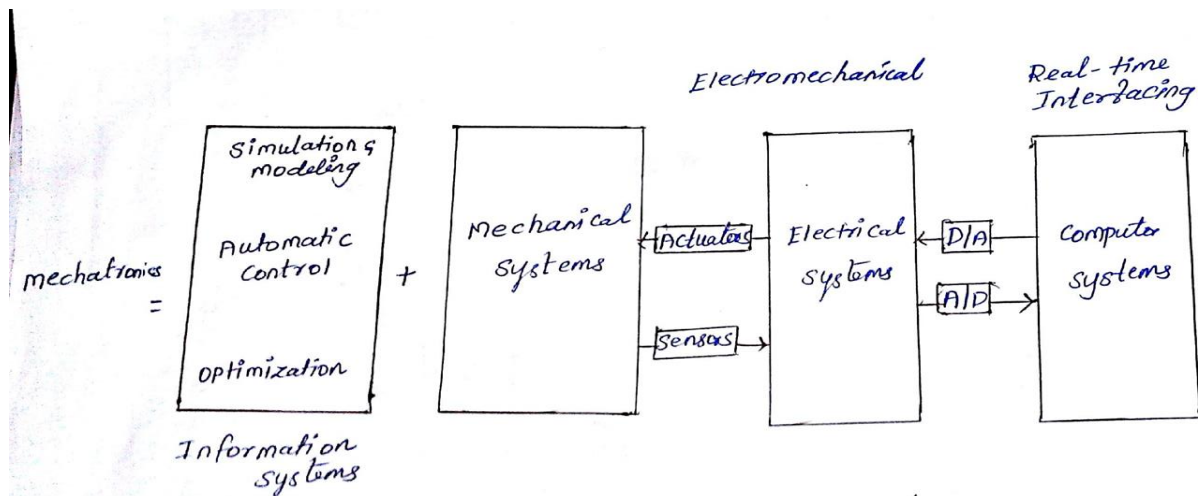 Electromechanical
Real-time
Interfacing
mechatronics
=
Simulation &
modeling
Automatic
control
optimization
Information
systems
+
Mechanical
systems
Actuators
Sensors
Electrical
systems
D/A
A/D
Computer
systems